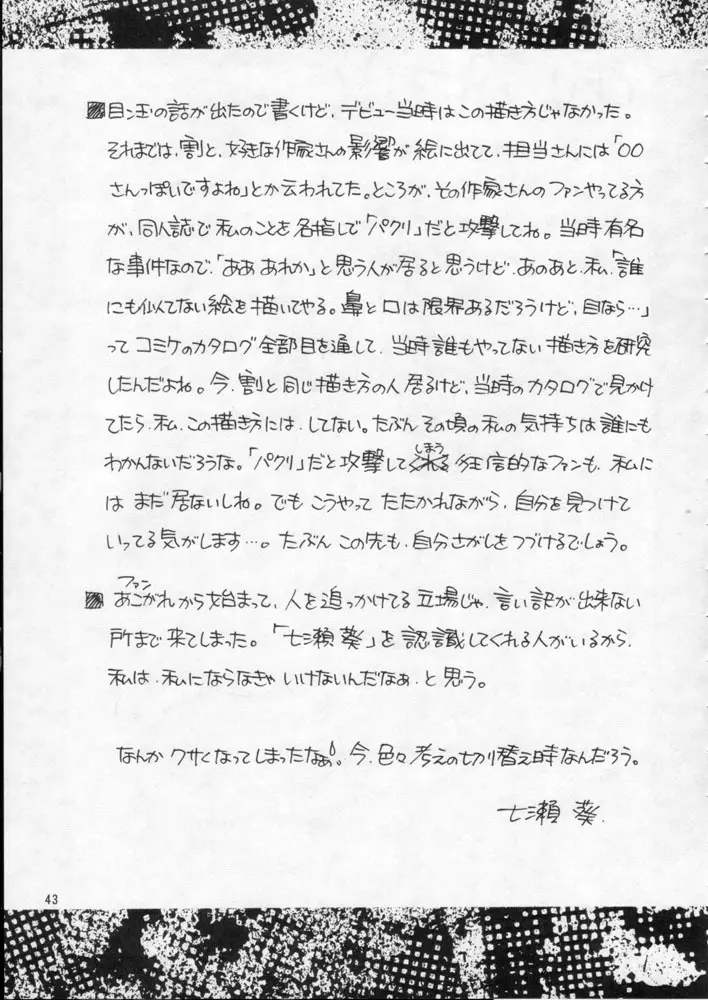 目ン玉の話が出たので書くけど、デビュー当時はこの描き方じゃなかった。
それまでは、割と、好きな作家さんの影響が絵に出てて、担当さんには「○○
さんっぽいですよね」とか云われてた。ところが、その作家さんのファンやってる方
が、同人誌で私のことを名指しで「パクリ」だと攻撃してね。当時有名
な事件なので、「あああれか」と思う人が居ると思うけど、あのあと、私、「誰
にも似てない絵を描いてやる。鼻と口は限界あるだろうけど、目なら…」
ってコミケのカタログ全部目を通して、当時誰もやってない描き方を研究
したんだよね。今、割と同じ描き方の人居るけど、当時のカタログで見かけ
てたら、私、この描き方には、してない。たぶんその頃の私の気持ちは誰にも
しまう
わかんないだろうな。「パクリ」だと攻撃してくれる狂信的なファンも、私に
は まだ居ないしね。でも こうやって たたかれながら、自分を見つけて
いってる気がします…。たぶん この先も、自分さがしをつづけるでしょう。
ファン
あこがれから始まって、人を追っかけてる立場じゃ、言い訳が出来ない
所まで来てしまった。「七瀬葵」を認識してくれる人がいるから、
私は、私にならなきゃ いけないんだなぁ、と思う。
なんか クサくなってしまったなぁ。今、色々考えの切り替え時なんだろう。
七瀬 葵.
43